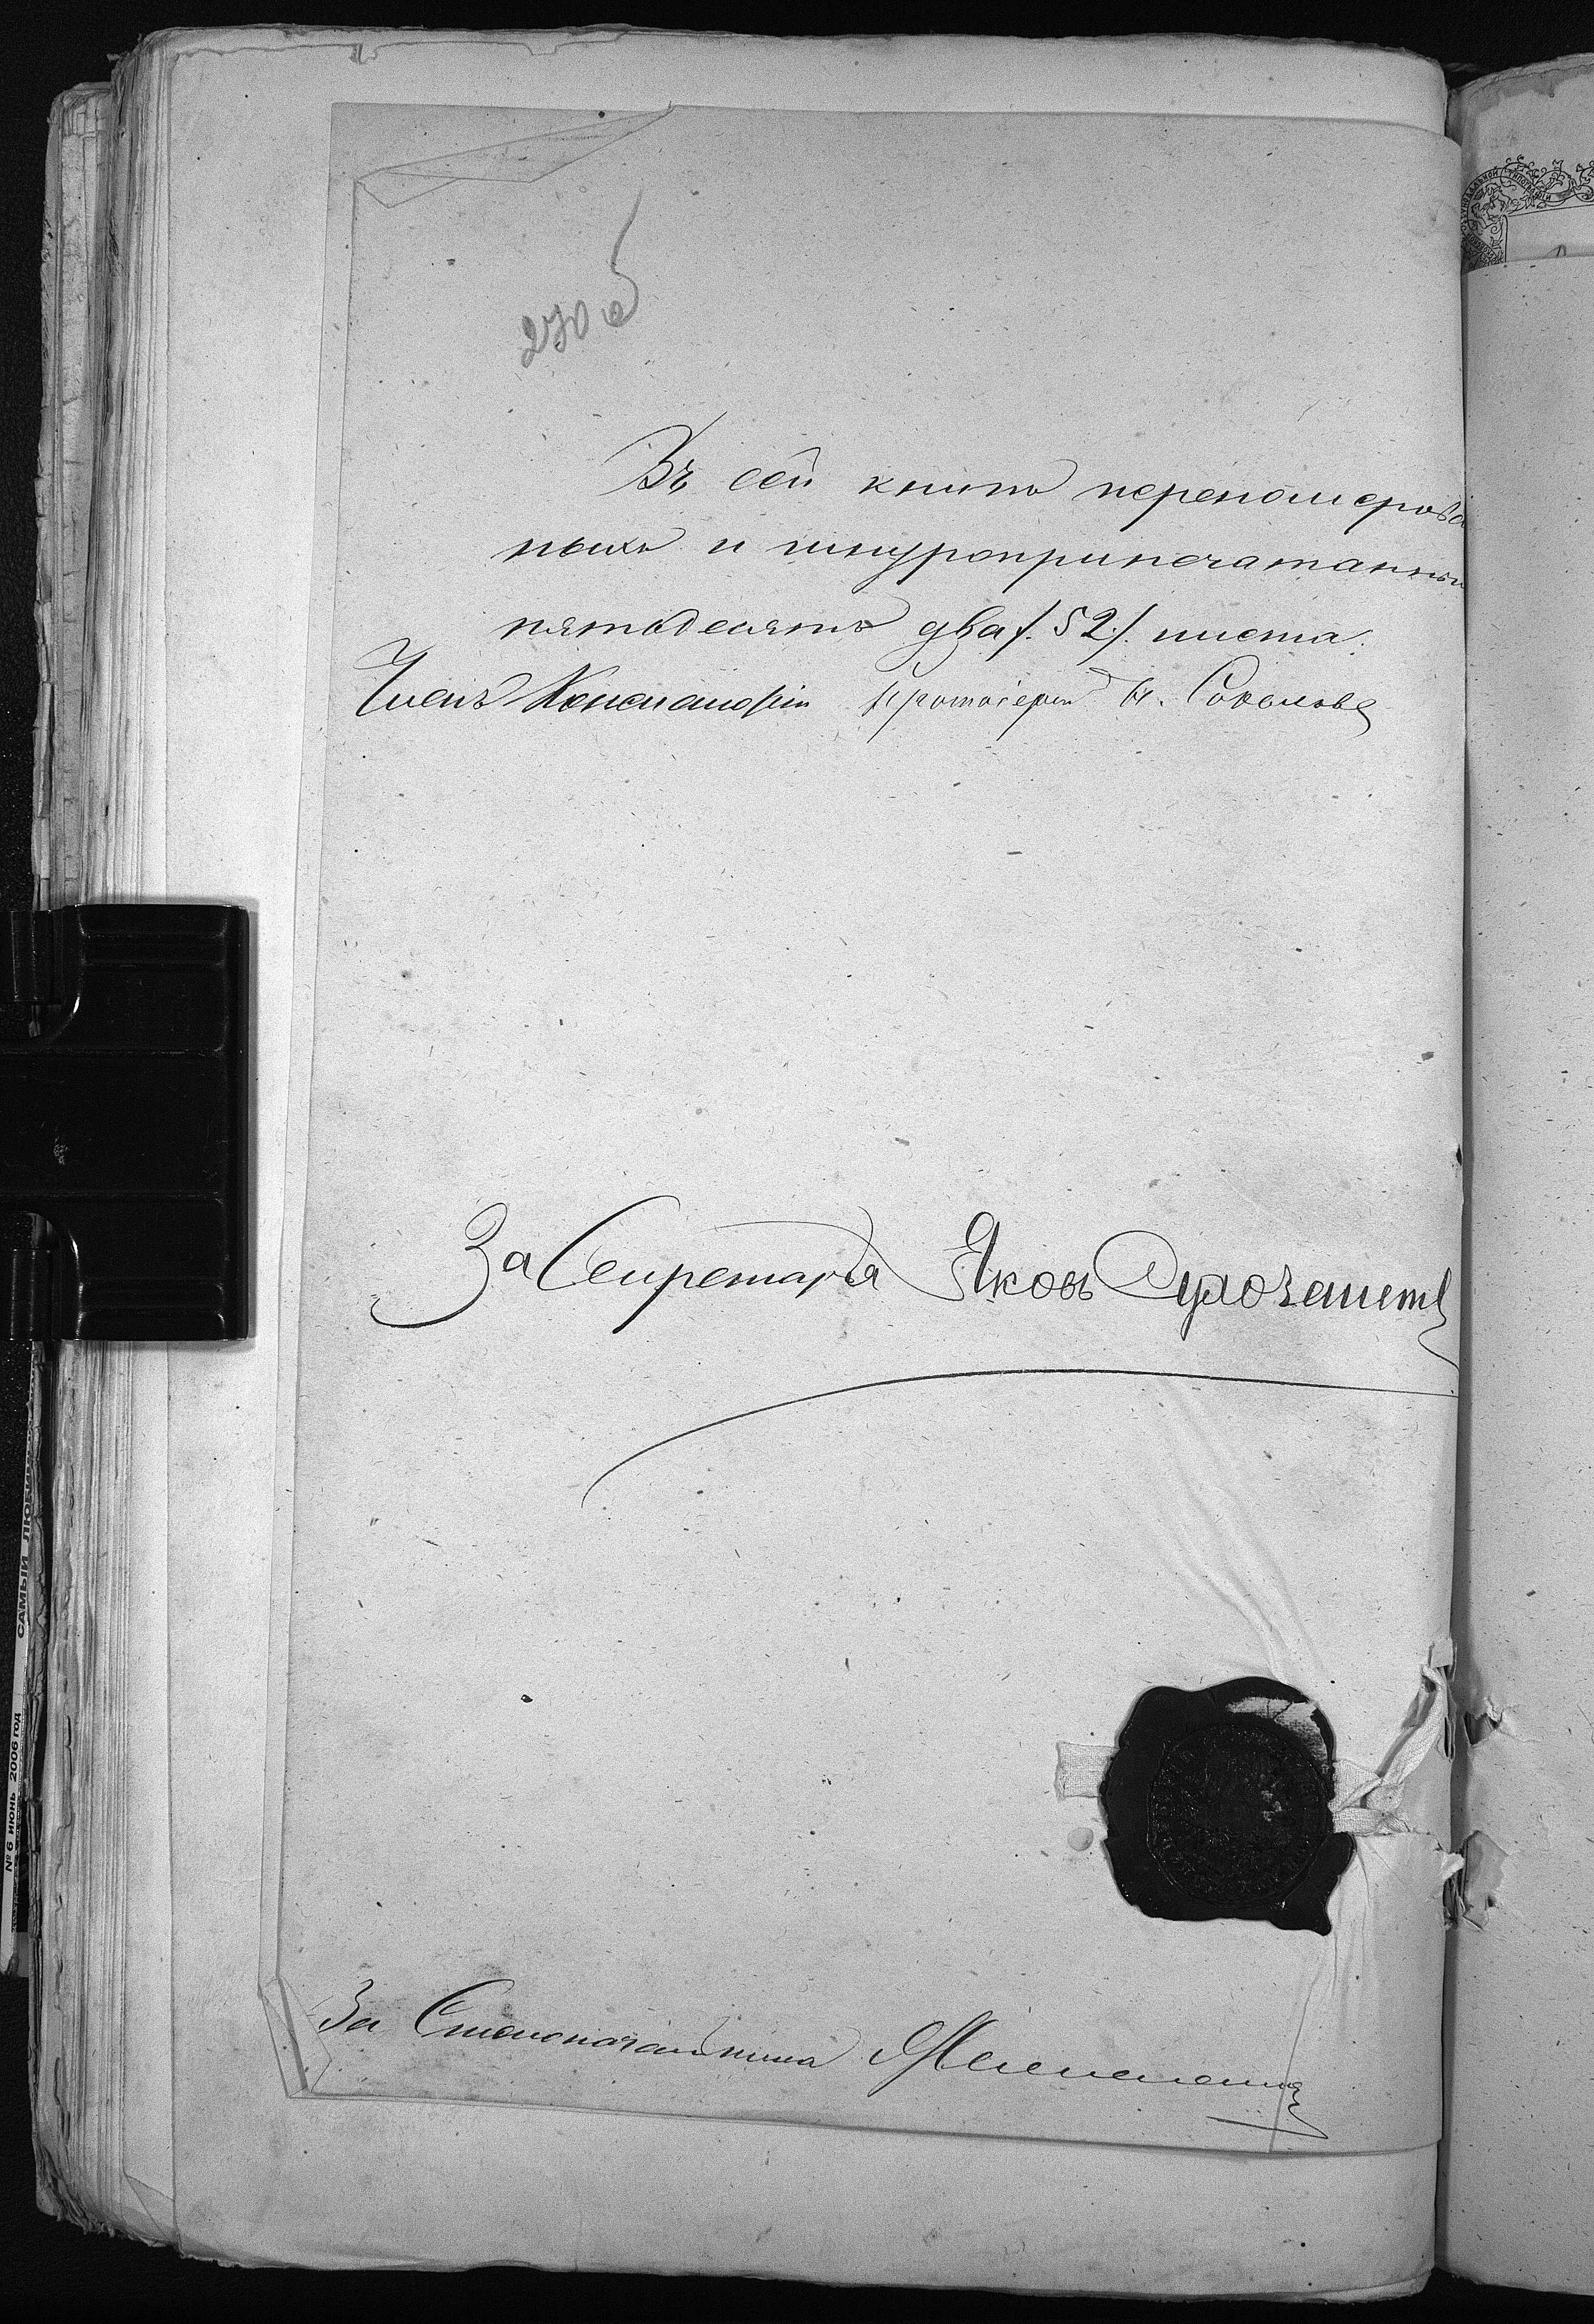 270 об
Въ сей книгѣ перенумерова
ныхъ и шнуроприпечатанны
пятьдесятъ два /. 52 /. листа.
Членъ Консисторіи Протоіерей Н. Соколовъ
За Секретаря Яковъ
За Столоначальника
САМЫЙ
№ 6 ИЮНЬ 2006 ГОД
ТИПОГРАФІИ